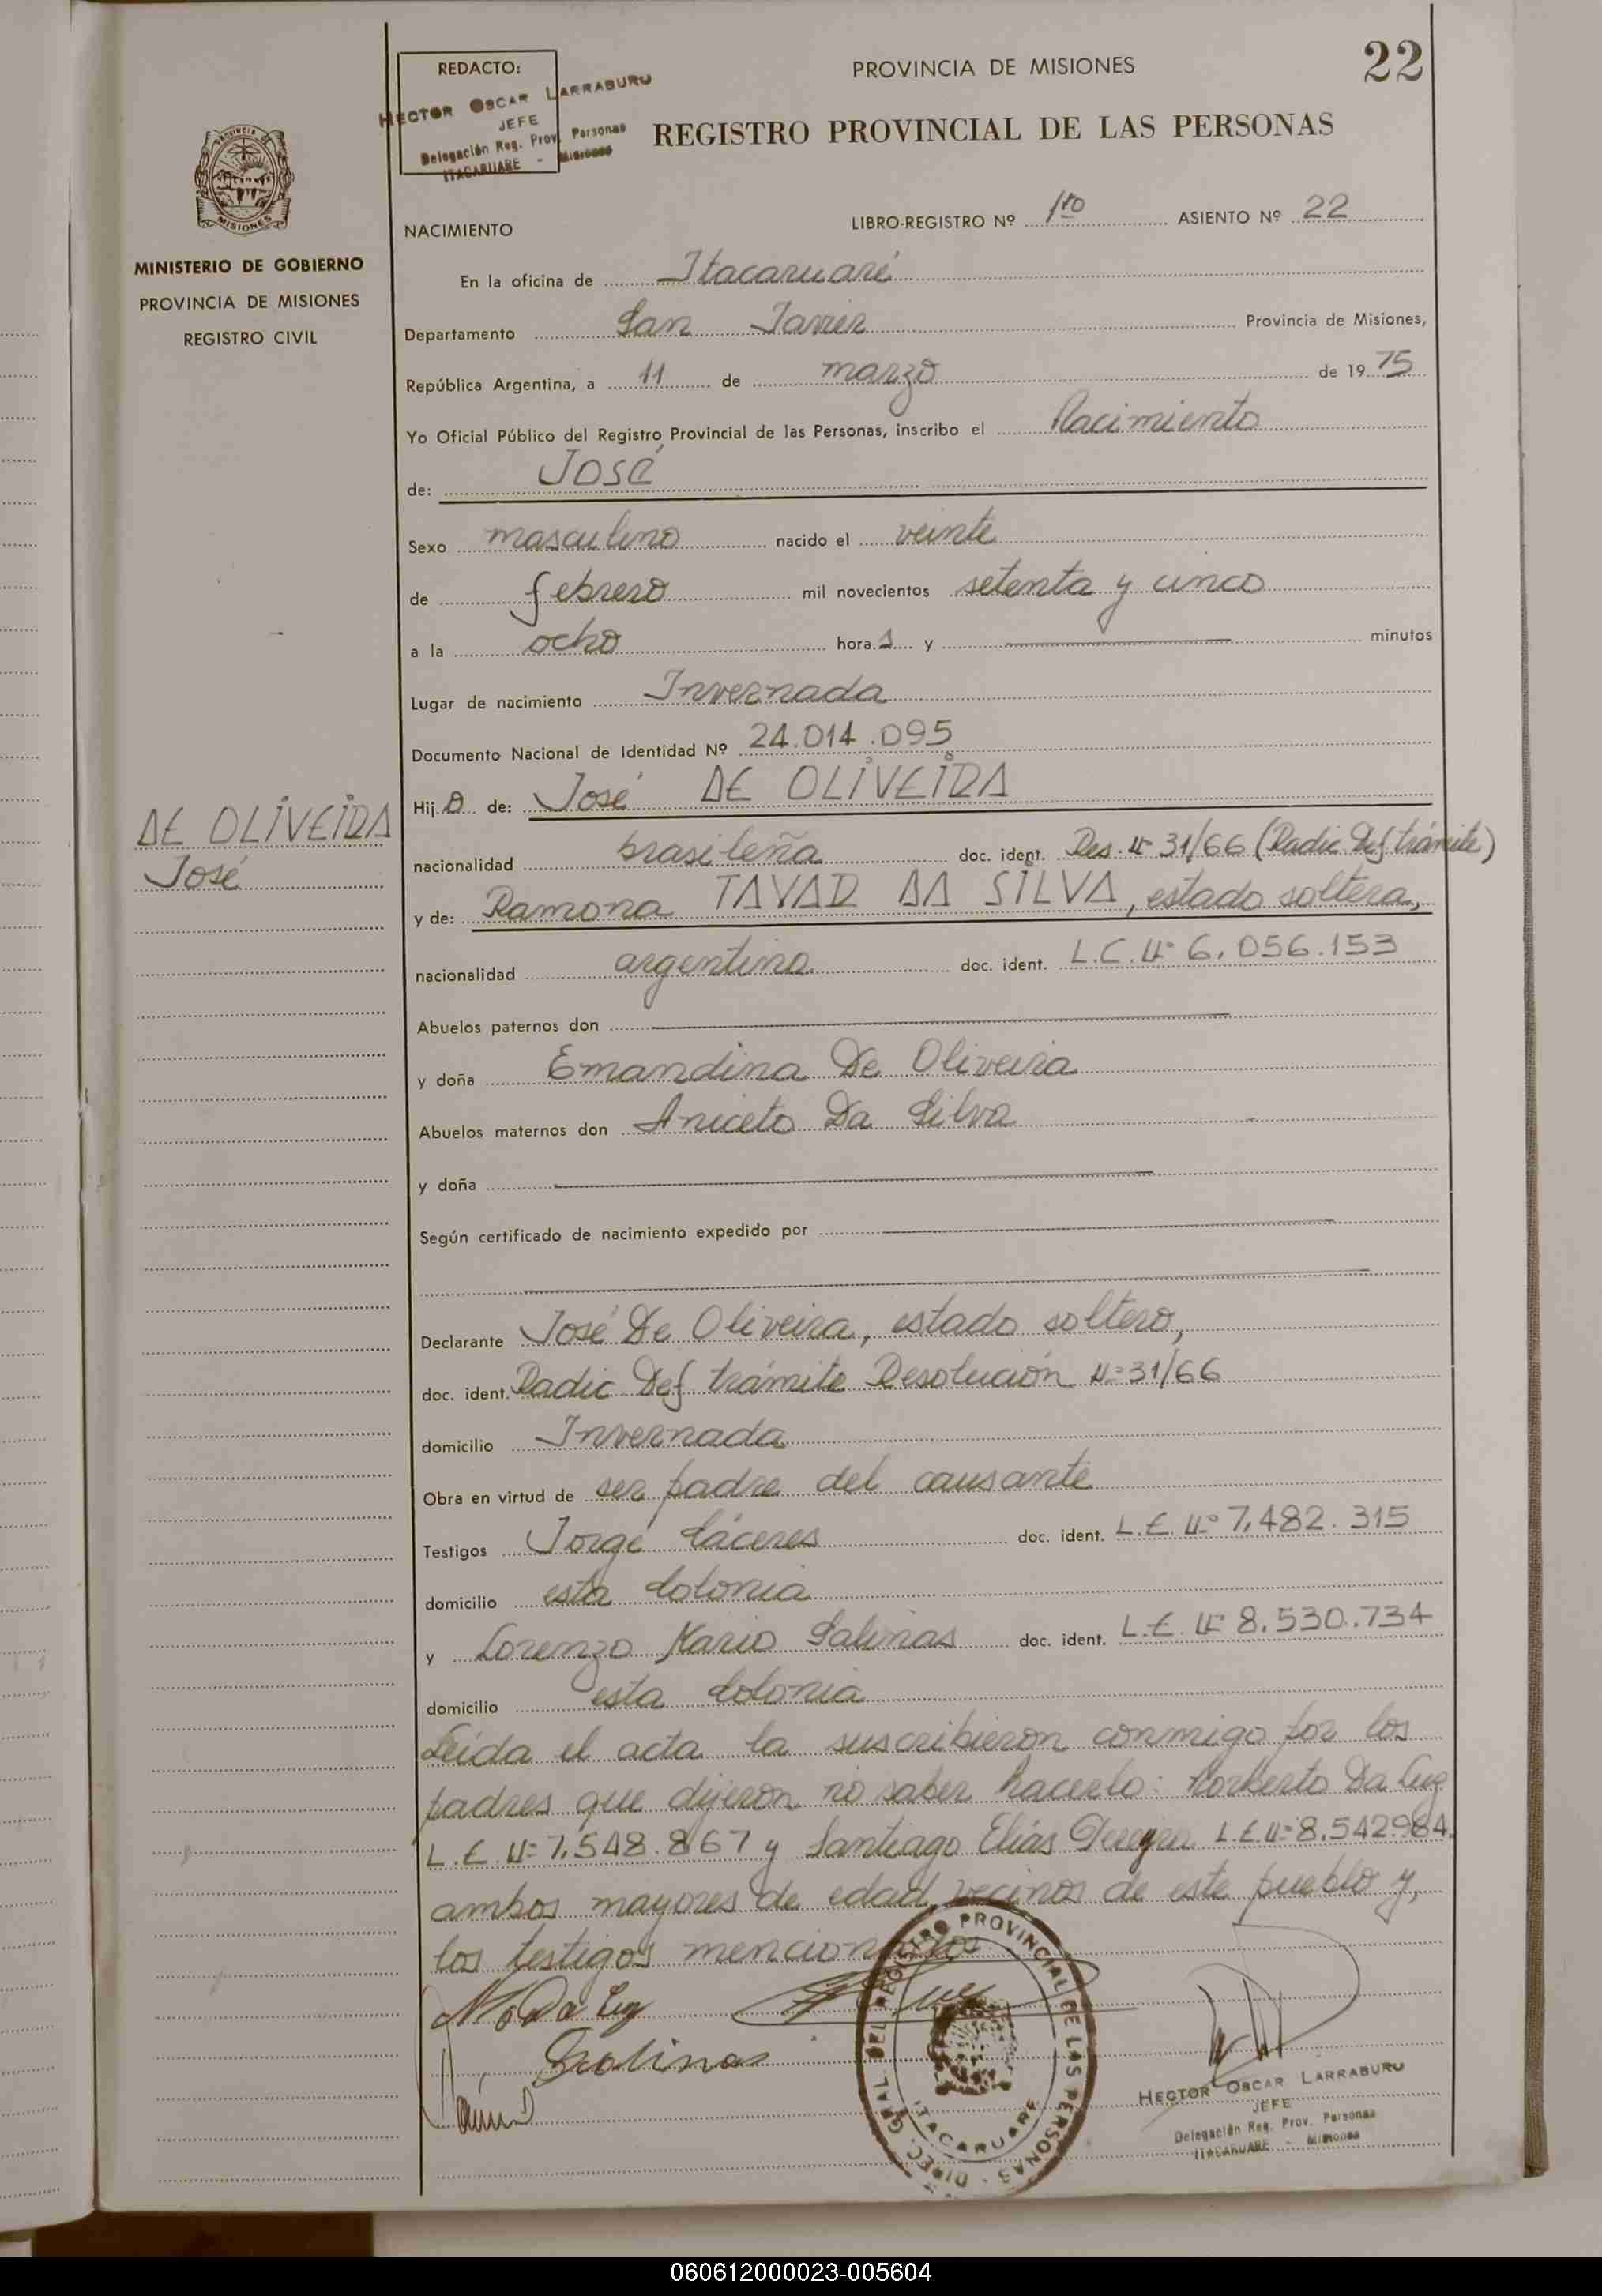 22
REDACTO:
HECTOR OSCAR LARRABURU
JEFE
Delegación Reg. Prov. Personas
ITACARUARE - Misiones
PROVINCIA DE MISIONES
REGISTRO PROVINCIAL DE LAS PERSONAS
PROVINCIA DE
MISIONES
MINISTERIO DE GOBIERNO
PROVINCIA DE MISIONES
REGISTRO CIVIL
NACIMIENTO
LIBRO-REGISTRO Nº 1ro ASIENTO Nº 22
En la oficina de Itacaruaré
Departamento San Javier Provincia de Misiones,
República Argentina, a 11 de marzo de 1975
Yo Oficial Público del Registro Provincial de las Personas, inscribo el Nacimiento
de: JOSÉ
Sexo masculino nacido el veinte
de febrero mil novecientos setenta y cinco
a la ocho horas y minutos
Lugar de nacimiento Invernada
Documento Nacional de Identidad Nº 24.014.095
DE OLIVEIRA
José
Hijo de: José DE OLIVEIRA
nacionalidad brasileña doc. ident. Res. Nº 31/66 (Radic Def trámite)
y de: Ramona TAVAR DA SILVA, estado soltera,
nacionalidad argentina doc. ident. L.C. Nº 6.056.153
Abuelos paternos don
y doña Emandina De Oliveira
Abuelos maternos don Aniceto Da Silva
y doña
Según certificado de nacimiento expedido por
Declarante José De Oliveira, estado soltero,
doc. ident. Radic Def trámite Resolución Nº 31/66
domicilio Invernada
Obra en virtud de ser padre del causante
Testigos Jorge Cáceres doc. ident. L.E. Nº 7.482.315
domicilio esta Colonia
y Lorenzo Mario Salinas doc. ident. L.E. Nº 8.530.734
domicilio esta Colonia
Leída el acta la suscribieron conmigo por los
padres que dijeron no saber hacerlo: Norberto Da Luz
L.E. Nº 7.548.867 y Santiago Elías L.E. Nº 8.542.984,
ambos mayores de edad, vecinos de este pueblo y,
los testigos mencionados
N. Da Luz
Salinas
DIREC. GRAL. DEL REGISTRO PROVINCIAL DE LAS PERSONAS
ITACARUARE
HECTOR OSCAR LARRABURU
JEFE
Delegación Reg. Prov. Personas
ITACARUARE - Misiones
060612000023-005604